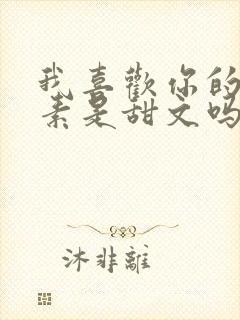 我喜歡你的
素是甜文吗
沐非離